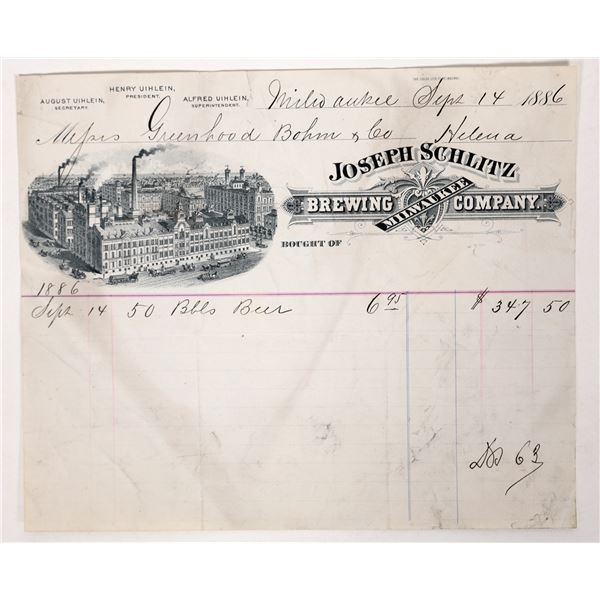 HENRY UIHLEIN,
PRESIDENT.
AUGUST UIHLEIN,
SECRETARY.
ALFRED UIHLEIN,
SUPERINTENDENT.
Milwaukee Sept 14 1886
Messrs Greenhood Bohm & Co Helena
JOSEPH SCHLITZ
BREWING COMPANY.
MILWAUKEE
BOUGHT OF
1886
Sept 14 50 Bbls Beer 6 95 $ 347 50
63